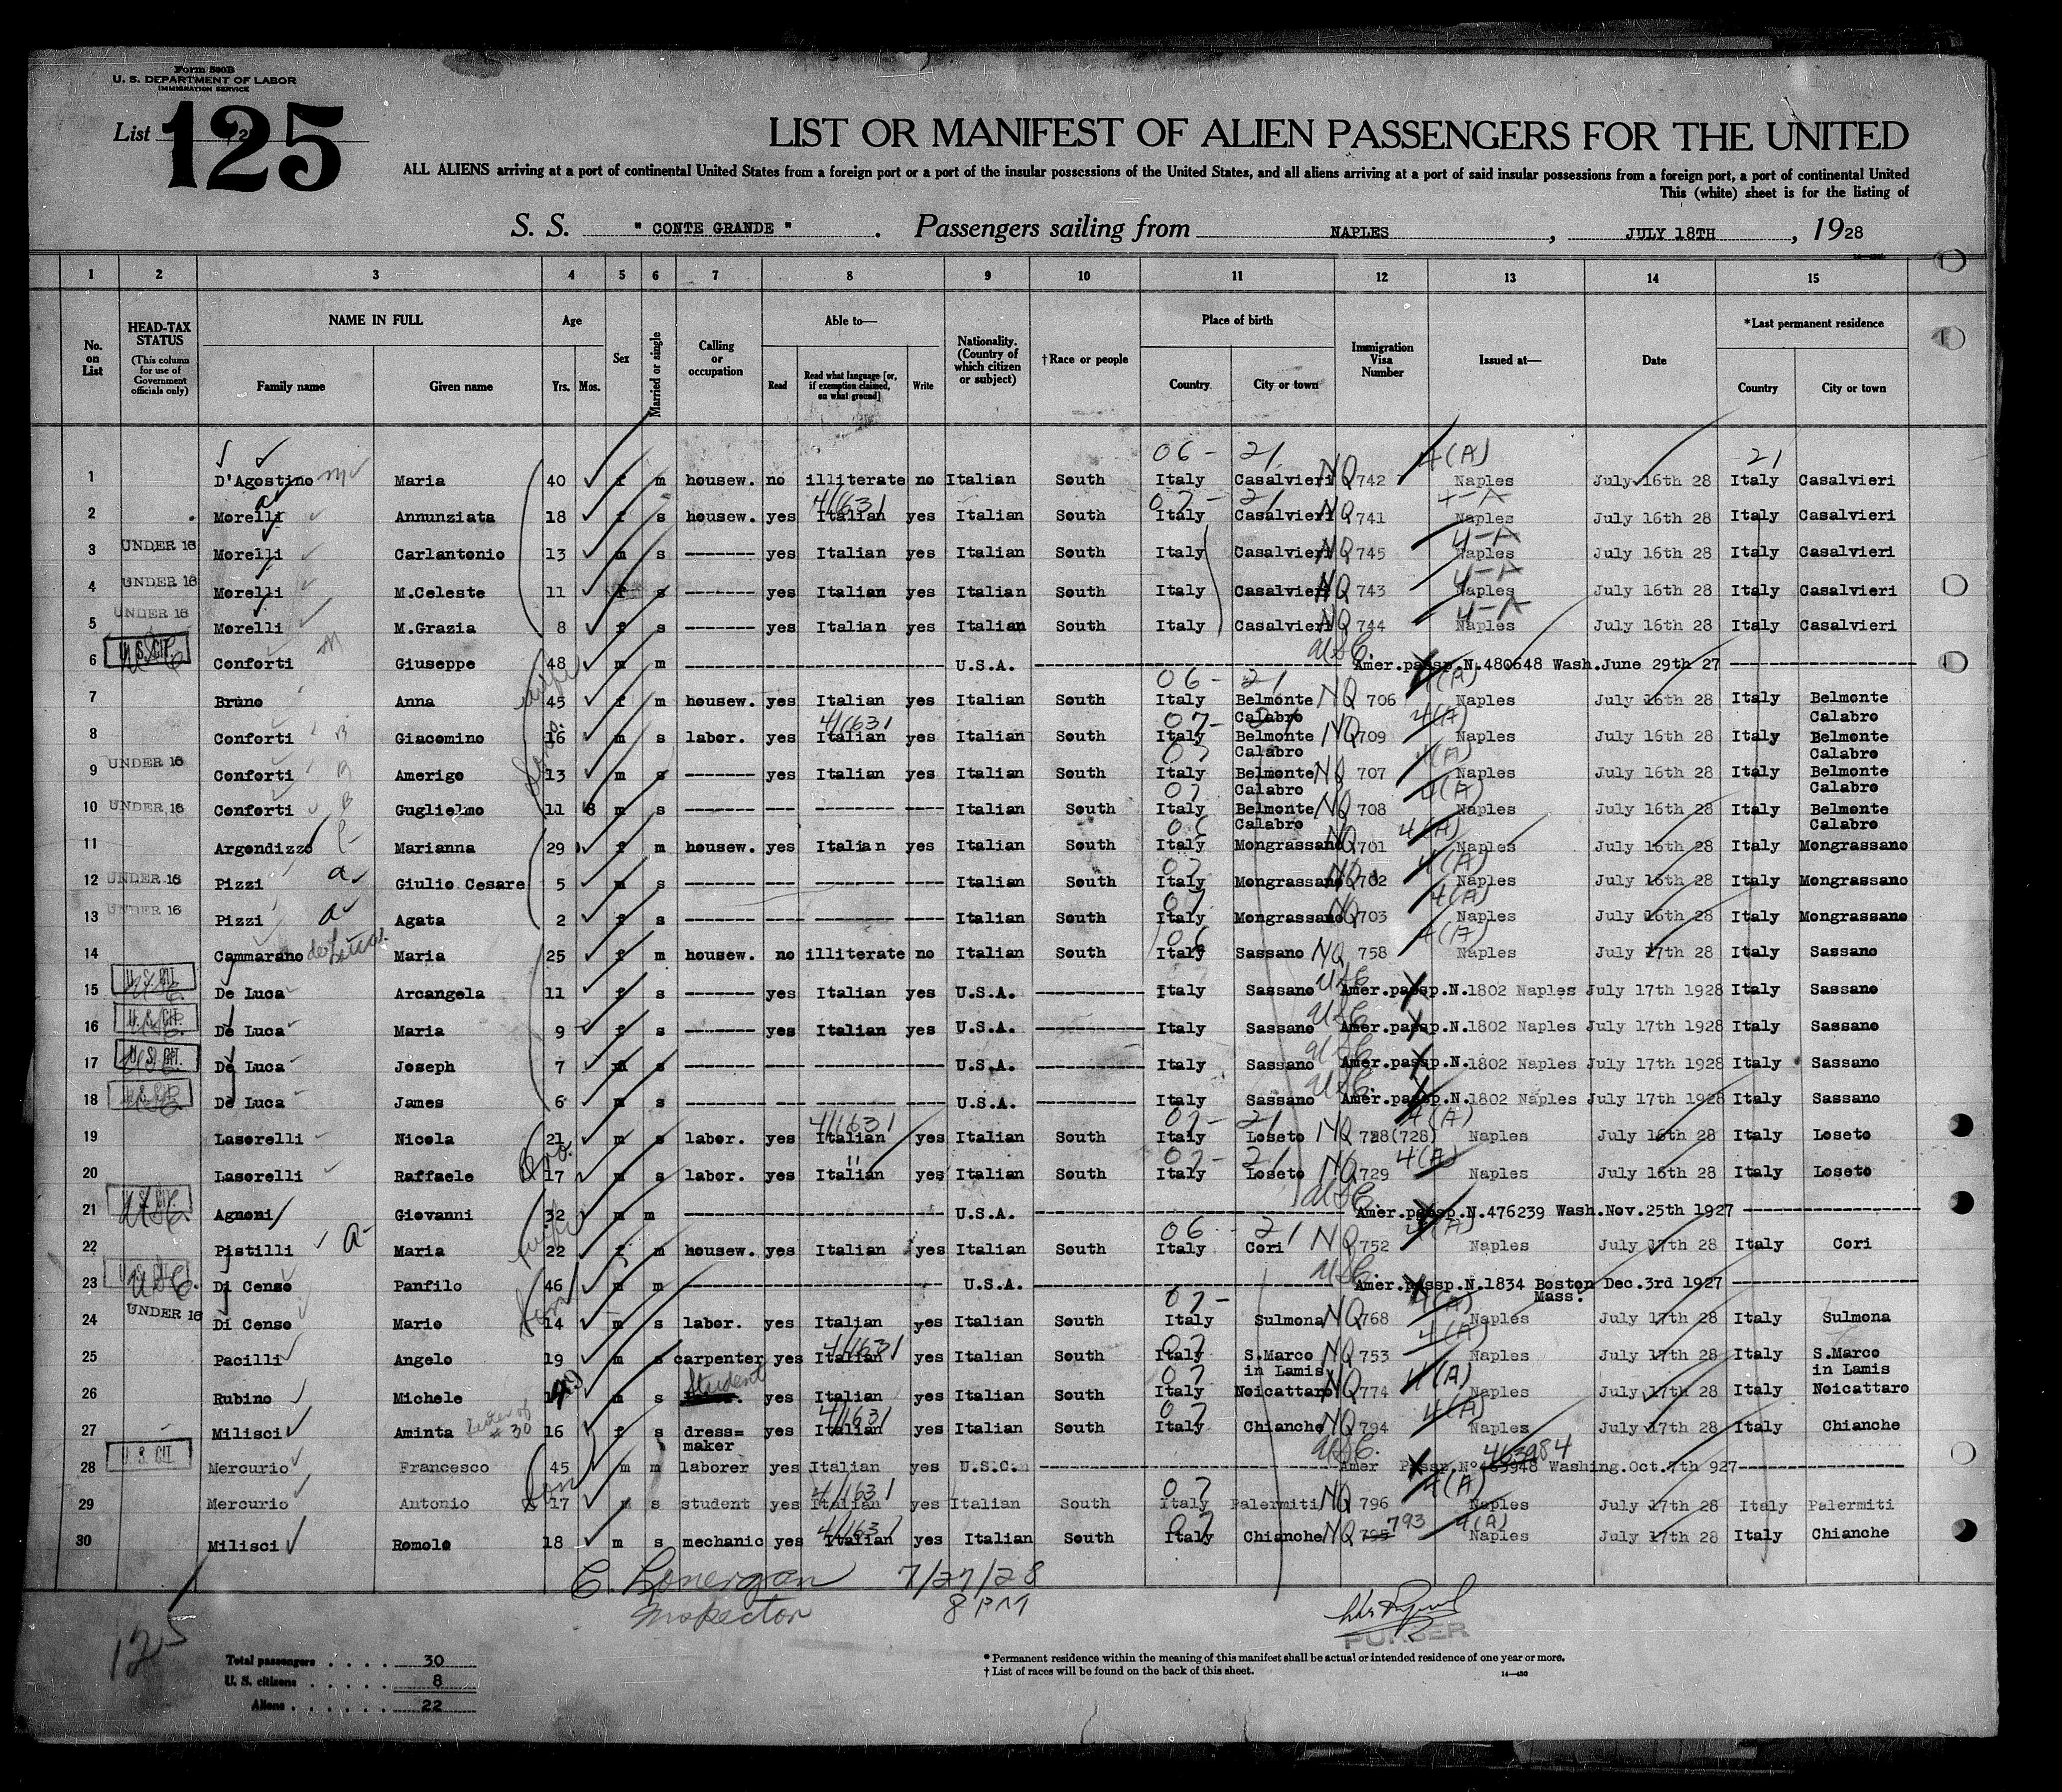 Form 500B
U. S. DEPARTMENT OF LABOR
IMMIGRATION SERVICE
List 125
LIST OR MANIFEST OF ALIEN PASSENGERS FOR THE UNITED
ALL ALIENS arriving at a port of continental United States from a foreign port or a port of the insular possessions of the United States, and all aliens arriving at a port of said insular possessions from a foreign port, a port of continental United
This (white) sheet is for the listing of
S. S. " CONTE GRANDE " . Passengers sailing from NAPLES , JULY 18TH , 1928
1 2 3 4 5 6 7 8 9 10 11 12 13 14 15
No. on List
HEAD-TAX STATUS (This column for use of Government officials only)
NAME IN FULL
Family name Given name
Age
Yrs. Mos.
Sex
Married or single
Calling or occupation
Able to—
Read Read what language [or, if exemption claimed, on what ground] Write
Nationality. (Country of which citizen or subject)
†Race or people
Place of birth
Country City or town
Immigration Visa Number
Issued at—
Date
*Last permanent residence
Country City or town
06 - 21 4(A) 21
1 D'Agostino Maria 40 f m housew. no illiterate no Italian South Italy Casalvieri NQ 742 Naples July 16th 28 Italy Casalvieri
2 Morelli Annunziata 18 f s housew. yes Italian yes Italian South Italy Casalvieri NQ 741 Naples July 16th 28 Italy Casalvieri
3 UNDER 16 Morelli Carlantonio 13 m s ------- yes Italian yes Italian South Italy Casalvieri NQ 745 Naples July 16th 28 Italy Casalvieri
4 UNDER 16 Morelli M.Celeste 11 f s ------- yes Italian yes Italian South Italy Casalvieri NQ 743 Naples July 16th 28 Italy Casalvieri
5 UNDER 16 Morelli M.Grazia 8 f s ------- yes Italian yes Italian South Italy Casalvieri NQ 744 Naples July 16th 28 Italy Casalvieri
6 U. S. CIT. Conforti Giuseppe 48 m m ------- U.S.A. ------- Amer.passp.N.480648 Wash.June 29th 27 -------
7 Bruno Anna 45 f m housew. yes Italian yes Italian South Italy Belmonte Calabro NQ 706 Naples July 16th 28 Italy Belmonte Calabro
8 Conforti Giacomino 16 m s labor. yes Italian yes Italian South Italy Belmonte Calabro NQ 709 Naples July 16th 28 Italy Belmonte Calabro
9 UNDER 16 Conforti Amerigo 13 m s ------- yes Italian yes Italian South Italy Belmonte Calabro NQ 707 Naples July 16th 28 Italy Belmonte Calabro
10 UNDER 16 Conforti Guglielmo 11 8 m s ------- --- -------- ---- Italian South Italy Belmonte Calabro NQ 708 Naples July 16th 28 Italy Belmonte Calabro
11 Argondizzo Marianna 29 f m housew. yes Italian yes Italian South Italy Mongrassano NQ 701 Naples July 16th 28 Italy Mongrassano
12 UNDER 16 Pizzi Giulio Cesare 5 m s ------- --- -------- ---- Italian South Italy Mongrassano NQ 702 Naples July 16th 28 Italy Mongrassano
13 UNDER 16 Pizzi Agata 2 f s ------- --- -------- ---- Italian South Italy Mongrassano NQ 703 Naples July 16th 28 Italy Mongrassano
14 Cammarano de Luca Maria 25 f m housew. no illiterate no Italian South Italy Sassano NQ 758 Naples July 17th 28 Italy Sassano
15 U. S. CIT. De Luca Arcangela 11 f s ------- yes Italian yes U.S.A. ---------- Italy Sassano Amer.passp.N.1802 Naples July 17th 1928 Italy Sassano
16 U. S. CIT. De Luca Maria 9 f s ------- yes Italian yes U.S.A. ---------- Italy Sassano Amer.passp.N.1802 Naples July 17th 1928 Italy Sassano
17 U. S. CIT. De Luca Joseph 7 m s ------- --- -------- ---- U.S.A. ---------- Italy Sassano Amer.passp.N.1802 Naples July 17th 1928 Italy Sassano
18 U. S. CIT. De Luca James 6 m s ------- --- -------- ---- U.S.A. ---------- Italy Sassano Amer.passp.N.1802 Naples July 17th 1928 Italy Sassano
19 Lasorelli Nicola 21 m s labor. yes Italian yes Italian South Italy Loseto NQ 728(728) Naples July 16th 28 Italy Loseto
20 Lasorelli Raffaele 17 m s labor. yes Italian yes Italian South Italy Loseto NQ 729 Naples July 16th 28 Italy Loseto
21 U. S. CIT. Agnoni Giovanni 32 m m ------- U.S.A. ------- Amer.passp.N.476239 Wash.Nov.25th 1927 -------
22 Pistilli Maria 22 f m housew. yes Italian yes Italian South Italy Cori NQ 752 Naples July 17th 28 Italy Cori
23 U. S. CIT. Di Censo Panfilo 46 m m ------- U.S.A. ------- Amer.passp.N.1834 Boston Mass. Dec.3rd 1927 -------
24 UNDER 16 Di Censo Mario 14 m s labor. yes Italian yes Italian South Italy Sulmona NQ 768 Naples July 17th 28 Italy Sulmona
25 Pacilli Angelo 19 m s carpenter yes Italian yes Italian South Italy S.Marco in Lamis NQ 753 Naples July 17th 28 Italy S.Marco in Lamis
26 Rubino Michele m s Student yes Italian yes Italian South Italy Noicattaro NQ 774 Naples July 17th 28 Italy Noicattaro
27 Milisci Aminta Sister of #30 16 f s dress=maker yes Italian yes Italian South Italy Chianche NQ 794 Naples July 17th 28 Italy Chianche
28 U. S. CIT. Mercurio Francesco 45 m m laborer yes Italian yes U.S.C. ------- Amer Passp.N°463948 463984 Washing.Oct.7th 927 -------
29 Mercurio Antonio 17 m s student yes Italian yes Italian South Italy Palermiti NQ 796 Naples July 17th 28 Italy Palermiti
30 Milisci Romolo 18 m s mechanic yes Italian yes Italian South Italy Chianche NQ 795 793 Naples July 17th 28 Italy Chianche
C. Lonergan 7/27/28
Inspector 8 PM
PURSER
125
Total passengers . . . . 30
U. S. citizens . . . . . 8
Aliens . . . . . . 22
* Permanent residence within the meaning of this manifest shall be actual or intended residence of one year or more.
† List of races will be found on the back of this sheet.
14—430